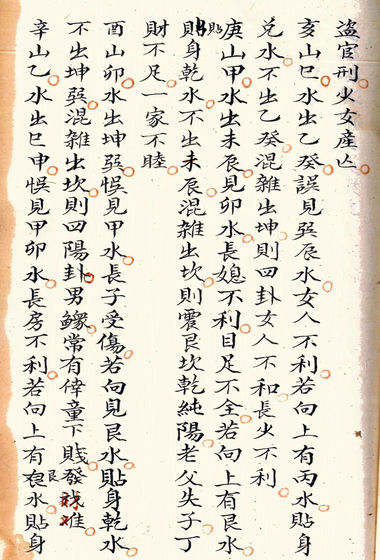 盜官刑火女產亡
亥山巳水出乙癸誤見巽辰水女人不利若向上有丙水貼身
兌水不出乙癸混雜出坤則四卦女人不和長火不利
庚山甲水出未辰見卯水長媳不利目足不全若向上有艮水
貼身乾水不出未辰混雜出坎則震艮坎乾純陽老父失子丁
財不足一家不睦
酉山卯水出坤巽悞見甲水長子受傷若向見艮水貼身乾水
不出坤巽混雜出坎則四陽卦男鰥常有倖童下賤發 准
辛山乙水出巳申悞見甲卯水長房不利若向上有艮水貼身